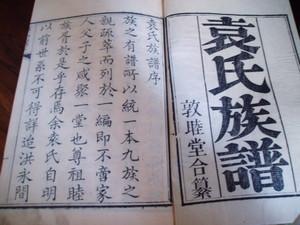 袁氏族譜
敦睦堂合纂
袁氏族譜序
族之有譜所以統一本九族之
親疎萃而列於一編即不啻家
人父子之咸聚一堂也尊祖睦
族胥於是乎存焉余袁氏自明
以前世系不可得詳造洪永間